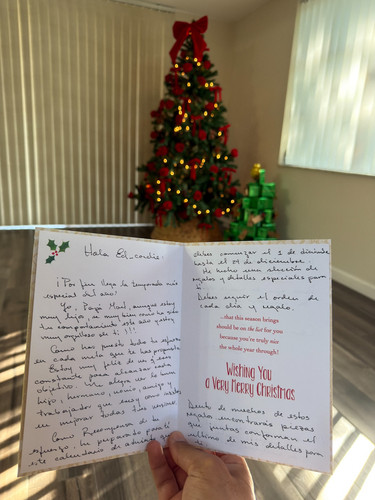 Hola Ed_conchis:
¡Por fin llego la temporada más
especial del año!
Yo, Papá Noel, aunque estoy
muy lejos, se muy bien como ha sido
tu comportamiento este año y estoy
muy orgulloso de ti!!!
Como has puesto todo tu esfuerzo
en cada meta que te has propuesto
Estoy muy feliz de
constante para alcanzar cada
objetivo. Me alegra ver lo buen
hijo, hermano, novio, amigo y
trabajador que eres y como
en mejorar todas tus
Como Recompensa de tu
esfuerzo, he preparado para ti
este calendario de adviento que
debes comenzar el 1 de diciembre
hasta el 24 de diciembre.
He hecho una selección de
regalos y detalles especiales para
ti
Debes seguir el orden de
cada día y regalo.
...that this season brings
should be on the list for you
because you're truly nice
the whole year through!
Wishing You
a Very Merry Christmas
Dentro de muchos de estos
regalos encontrarás piezas
que juntas conforman el
último de mis detalles para